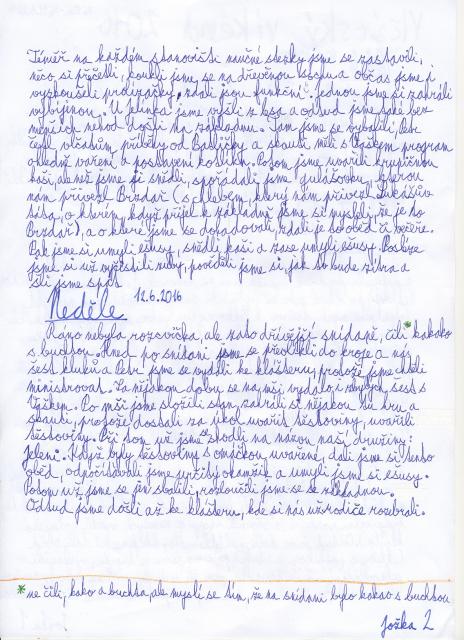 Téměř na každém stanovišti naučné stezky jsme se zastavili,
něco si přečetli, koukli jsme se na dřevěnou sochu a občas jsme i
vyzkoušeli prolízačky, zdali jsou funkční. Jednou jsme si zahráli
vybíjenou. U Jelínka jsme vyšli z lesa a odtud jsme také bez
menších nehod došli na základnu. Tam jsme se vybalili, Cebr
četl vlčatům příběhy od Babličky a skauti měli s Vaškem program
ohledně vaření a postavení kotlíku. Potom jsme uvařili krupičnou
kaši, ale než jsme ji snědli, spořádali jsme gulášovku, kterou
nám přivezl Brzďař (s chlebem, který nám přivezl Lukášův
táta, o kterém, když přijel k základně jsme si mysleli, že je to
Brzďař), a o které jsme se dohadovali, zdali je to oběd či večeře.
Pak jsme si umyli ešusy, snědli kaši a zase umyli ešusy. Posléze
jsme si už vyčistili zuby, pověděli jsme si, jak to bude zítra a
šli jsme spát.
Neděle 12.6.2016
Ráno nebyla rozcvička, ale zato dřívější snídaně, čili* kakako
s buchtou. Hned po snídani jsme se převlékli do kroje a nás
šest kluků a Cebr jsme se vydali ke klášteru, protože jsme chtěli
ministrovat. Za nějakou dobu se na mši vydalo i zbylých šest s
Vaškem. Po mši jsme složili stan, zahráli si nějakou tu hru a
skauti, protože dostali za úkol uvařit těstoviny, uvařili
těstoviny. Při tom už jsme se shodli na názvu naší družiny:
Jeleni. Když byly těstoviny s omáčkou uvařené, dali jsme si tento
oběd, odpočítávali jsme určitý okamžik a umyli jsme si ešusy.
Potom už jsme se jen sbalili, rozloučili jsme se se základnou.
Odtud jsme došli až ke klášteru, kde si nás už rodiče rozebrali.
*ne čili, kako a buchta, ale myslí se tím, že na snídani bylo kakao s buchtou
Jožka Z